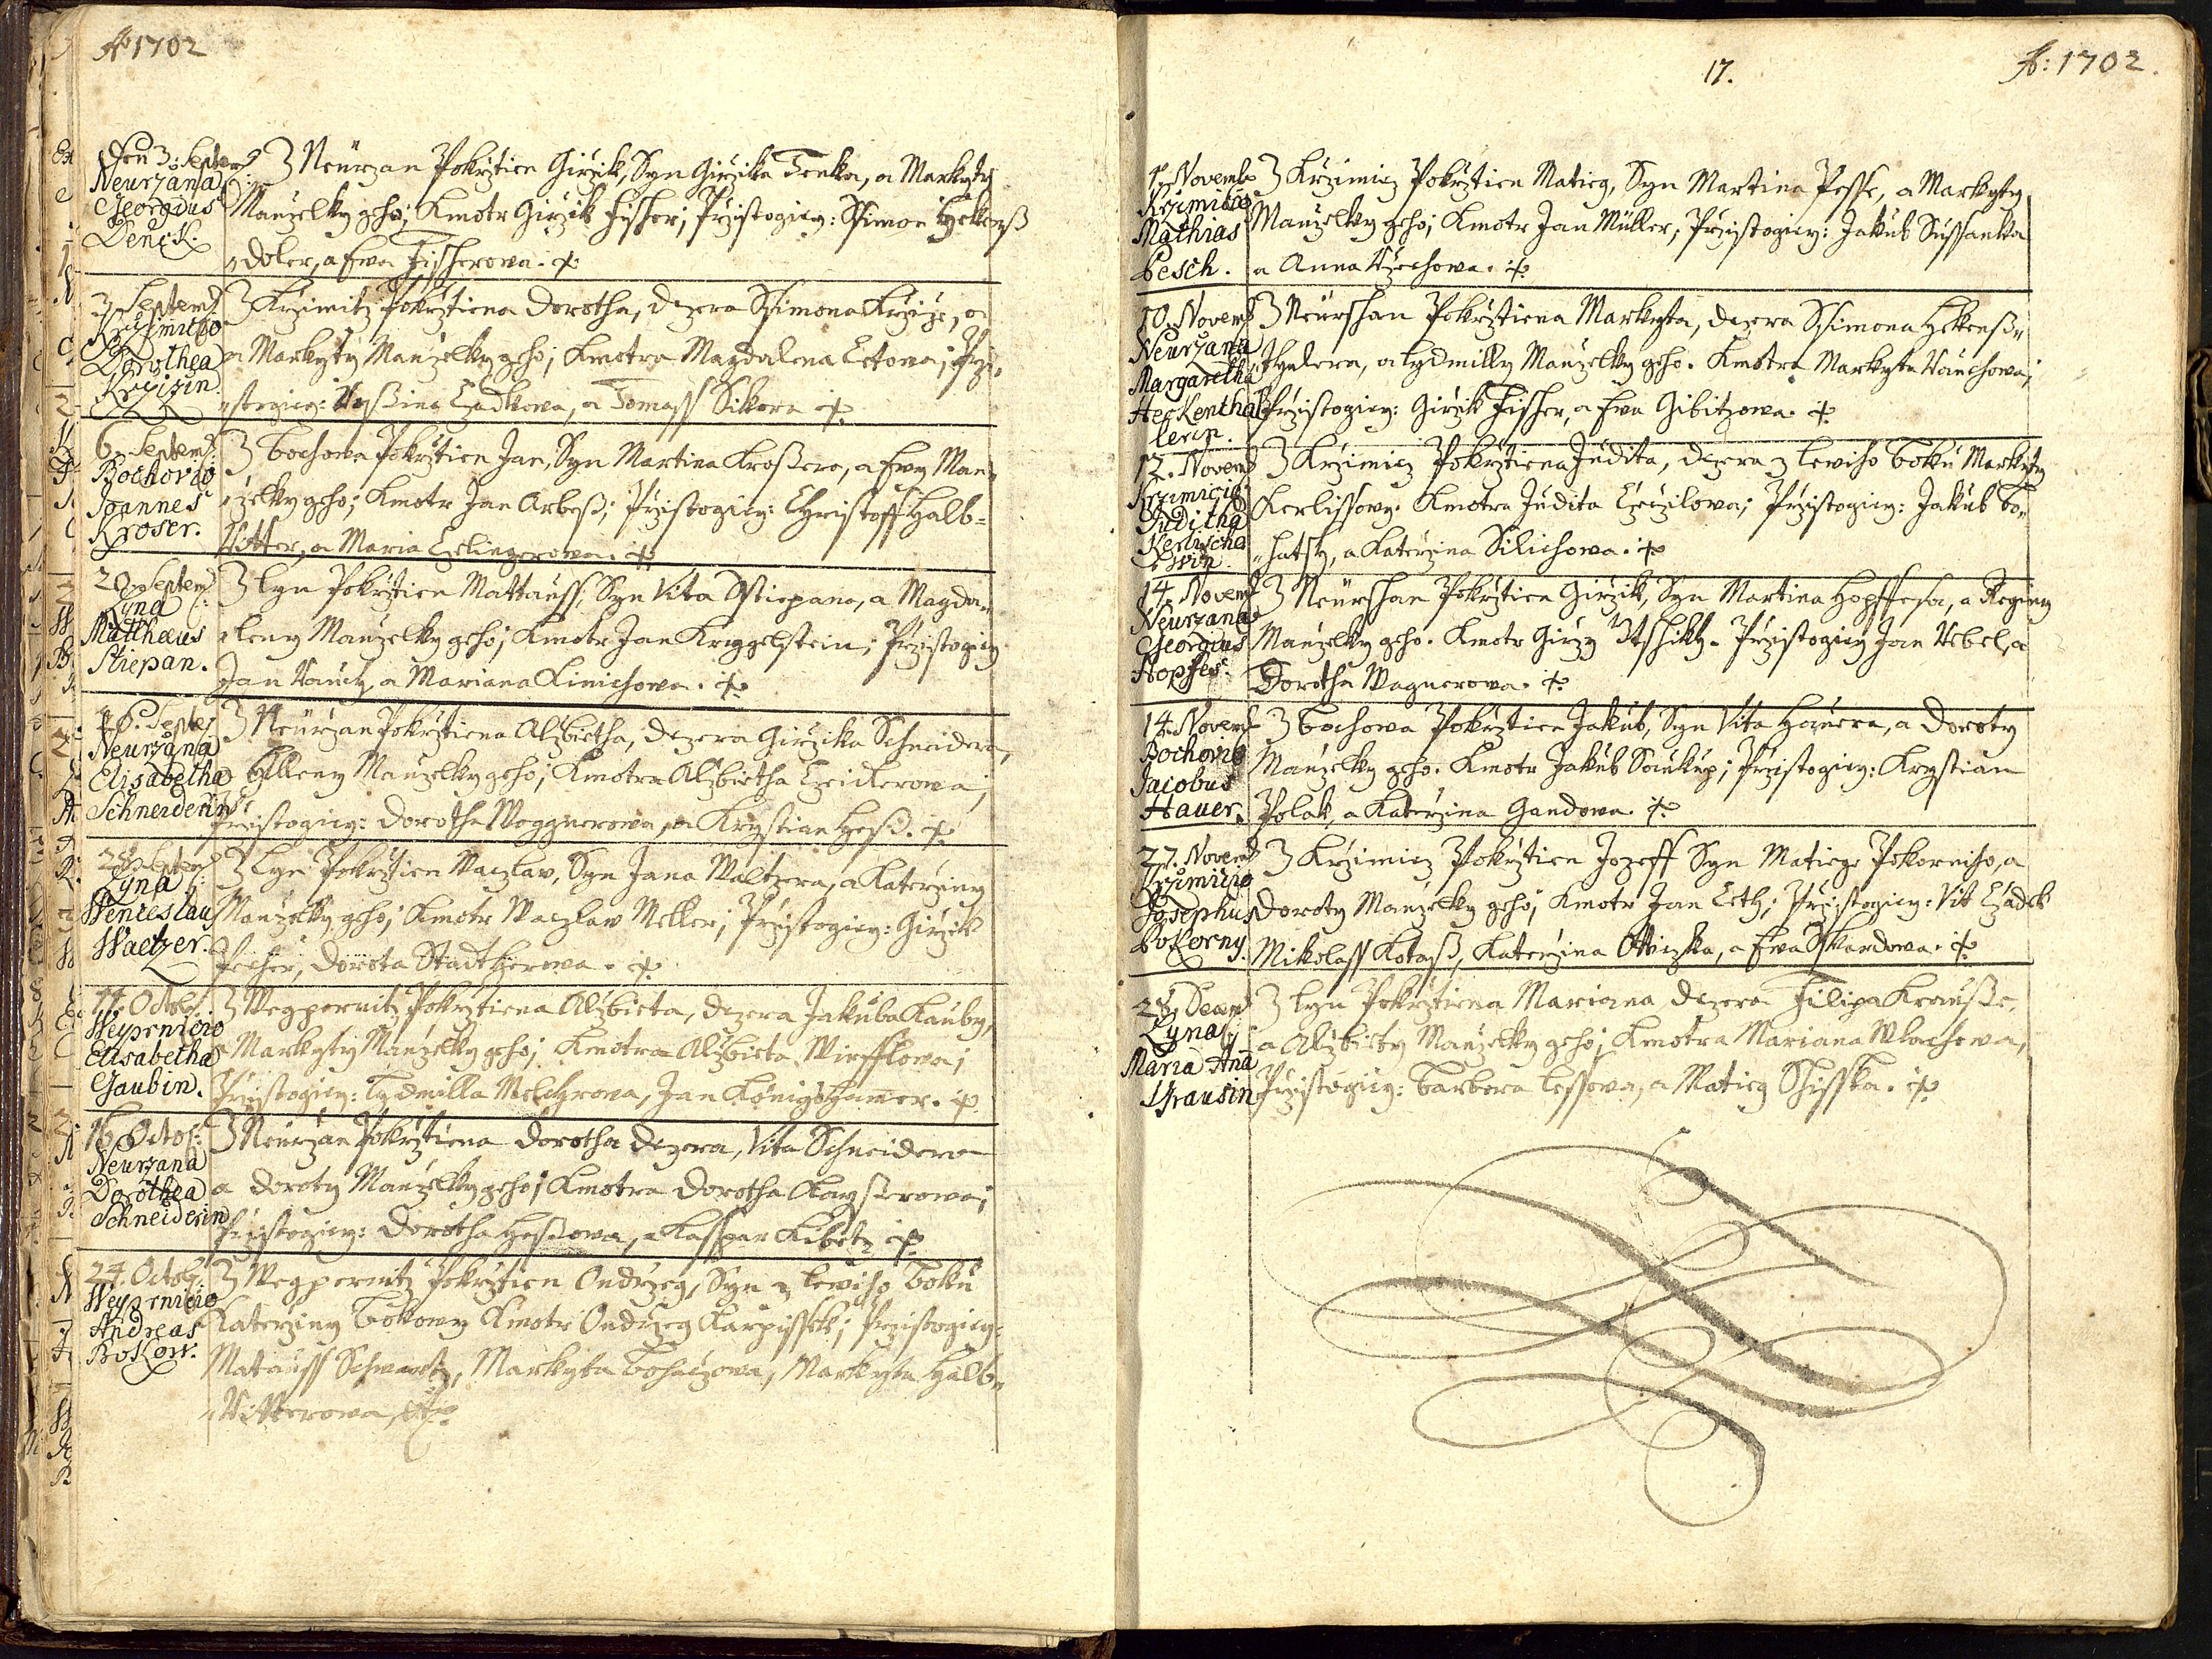 Ao 1702
Den 3. Septem:
Neurzana
Georgius
Denck.
Z Neurzan Pokrztien Girzik, Syn Girzika Tenka, a Markyty
Manzelky geho; Kmotr Girzik Fischer; Przistogicy: Ssimon Hekenß
doler, a Ewa Fischerowa.
3. Septem:
Krzimicio
Dorothea
Krzizin.
Z Krzimitz Pokrztiena Dorotha, Dczera Ssimona Krzize, a
a Markyty Manzelky geho; Kmotra Magdalena Cetowa; Przi-
stogicy: Czadkowa, a Tomass Sikora
6. Septem:
Bochovio
Joannes
Kroser.
Z Bochowa Pokrztien Jan, Syn Martina Kroßera, a Ewy Man-
zelky geho; Kmotr Jan Arbeß; Przistogicy: Christoff Halb-
Ritter, a Maria
20. Septem:
Lyna
Matthaeus
Stiepan.
Z Lyn Pokrztien Mattauss, Syn Vita Sstiepana, a Magda-
leny Manzelky geho; Kmotr Jan Kriggelstein; Przistogicy
Jan Rauch, a Mariana Kinichowa.
Septem
Neurzana
Elisabetha
Schneiderin
Z Neurzan Pokrztiena Alzbietha, Dczera Girzika Schneidera,
Helleny Manzelky geho; Kmotra Alzbietha
Przistogicy: Dorotha Woggnerowa, a Krystian Heß.
28. Septem:
Lyna
Wenceslaus
Waltzer.
Z Lyn Pokrztien Waczlaw, Syn Jana Waltzera, a Katerziny
Manzelky geho; Kmotr Waczlaw Meller; Przistogicy: Girzik
Pecher, Dorota Stadtherowa.
11. Octob:
Weyprnicio
Elisabetha
Gaubin.
Z Wegpernitz Pokrztiena Alzbieta, Dczera Jakuba Kauby,
a Markyty Manzelky geho; Kmotra Alzbieta Wirfflowa;
Przistogicy: Lydmilla Melchrowa, Jan Königshamer.
16. Octob:
Neurzana
Dorothea
Schneiderin
Z Neurzan Pokrztiena Dorotha Dczera, Vita Schneidera
a Doroty Manzelky geho; Kmotra Dorotha Kayßerowa;
Przistogicy: Dorotha Heßowa, a Kasspar Kibitz
24. Octob:
Weyprnicio
Andreas
Bokow.
Z Wegpernitz Pokrztien Ondrzeg, Syn z lewiho Boku
Katerziny Bokowy Kmotr Ondrzeg Karpissek; Przistogicy:
Matauss Schwartz, Markyta Bohaczowa, Markyta Halb-
Ritterowa,
17.
A: 1702.
Novemb
Krzimicio
Mathias
Pesch.
Z Krzimicz Pokrztien Matieg, Syn Martina Pesse, a Markyty
Manzelky geho; Kmotr Jan Müller; Przistogicy: Jakub Sussanka
a Anna
10. Novemb
Neurzana
Margaretha
Heckentha
lerin.
Z Neurshan Pokrztiena Markyta, Dczera Ssimona Hekenß-
thalera, a Lydmilly Manzelky geho. Kmotra Markyta Rauchowa;
Przistogicy: Girzik Fischer, a Ewa Gibitzowa.
12. Novemb
Krzimicio
Juditha
Kerlischo
win.
Z Krzimicz Pokrztiena Judita, Dczera z lewiho Boku Markyty
Kerlissowy. Kmotra Judita Czeczilowa; Przistogicy: Jakub Bo-
hatsch, a Katerzina Silichowa.
14. Novemb
Neurzana
Georgius
Hopfes.
Z Neurshan Pokrztien Girzik, Syn Martina Hopffesa, a Reginy
Manzelky geho. Kmotr Girzy Przistogicy Jan Nebel, a
Dorotha Wagnerowa.
14. Novemb
Bochovio
Jacobus
Hauer.
Z Bochowa Pokrztien Jakub, Syn Vita Hauera, a Doroty
Manzelky geho. Kmotr Jakub Saukup; Przistogicy: Krystian
Polak, a Katerzina Gandowa.
27. Novemb
Krzimicio
Josephus
Pokorny.
Z Krzimicz Pokrztien Jozeff Syn Matiege Pokorniho, a
Doroty Manzelky geho; Kmotr Jan Ceth; Przistogicy: Vit Czadek
Mikolass Kotaß, Katerzina a Ewa Skardowa.
28. Decem
Lyna
Maria Ana
Krausin
Z Lyn Pokrztiena Mariana Dczera Filipa Krauße,
a Alzbiety Manzelky geho; Kmotra Mariana Wlachowa,
Przistogicy: Barbora Lessowa, a Matieg Shisska.